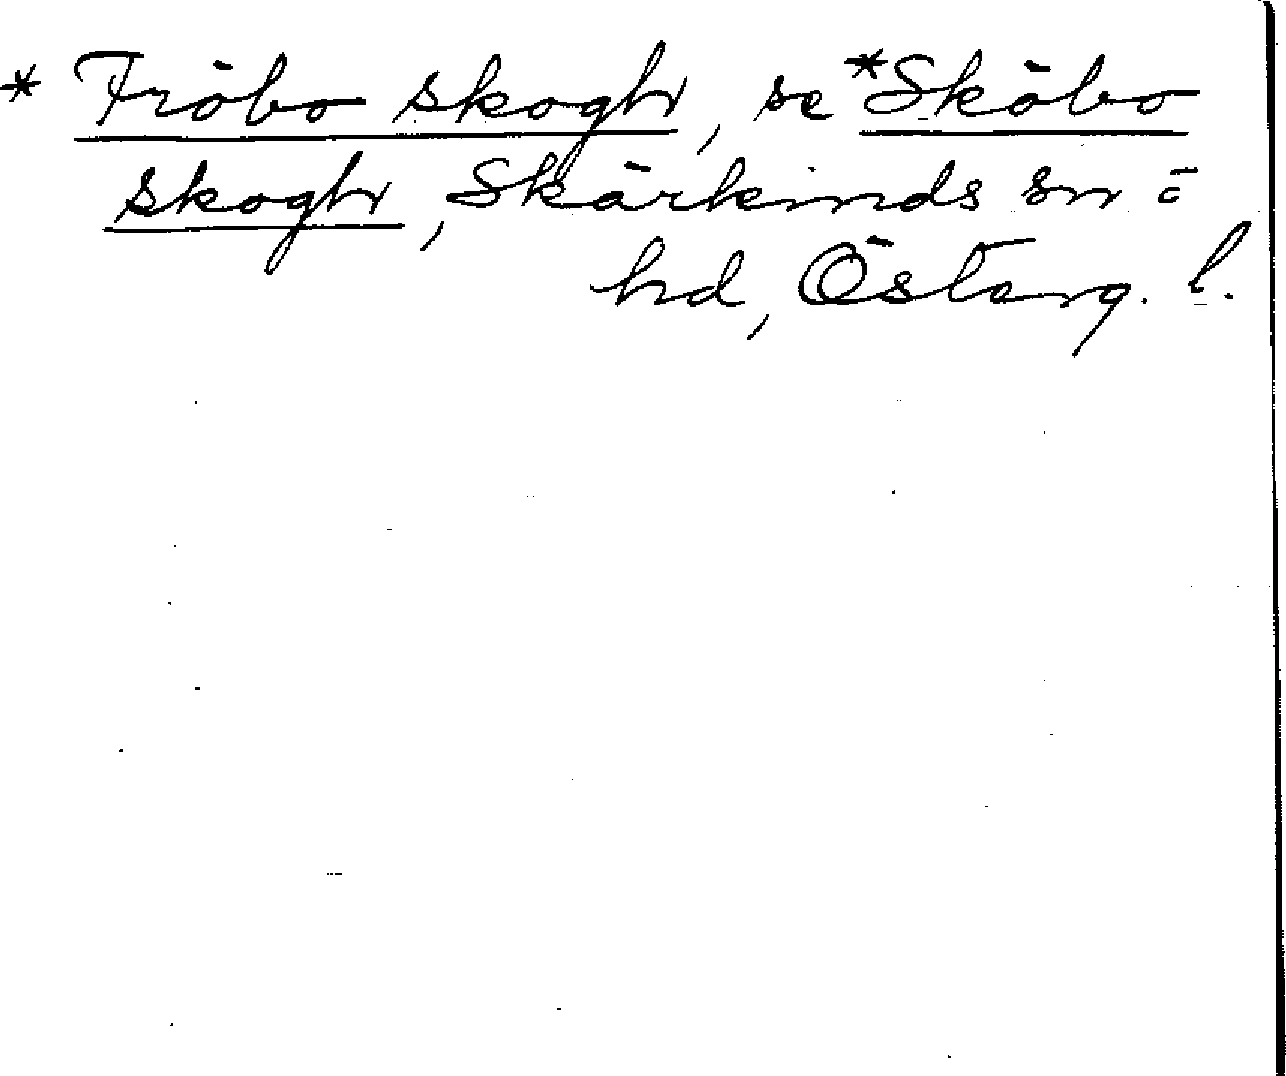 * Fröbo skogh, se *Sköbo
skogh, Skärkinds sn =
hd, Österg. l.